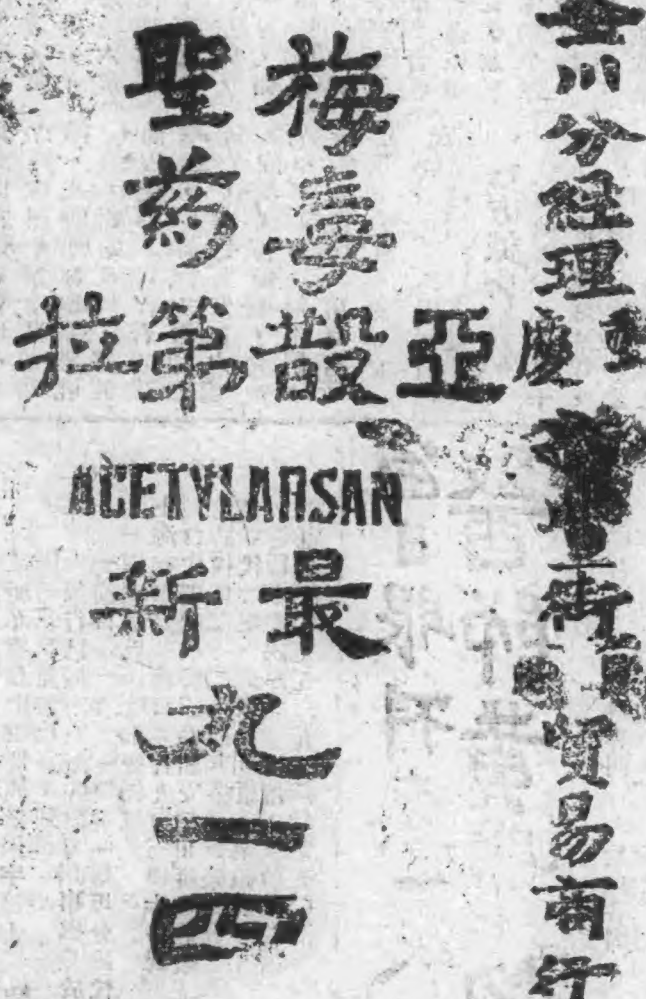 全川分經理
重慶
街
貿易商行
梅毒
聖葯
亞散第拉
ACETYLARSAN
最新
九一四